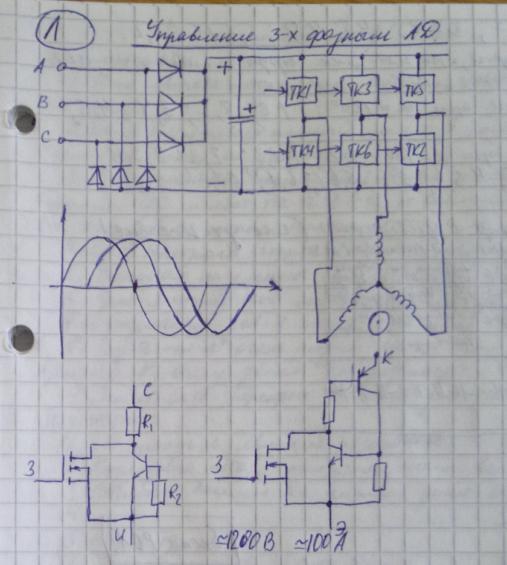 1
Управление 3-х фазным АД
А
+
ТК1 ТК3 ТК5
В
+
С
ТК4 ТК6 ТК2
−
К
С
R1
З
З
R2
И
Э
≈1200В ≈100А